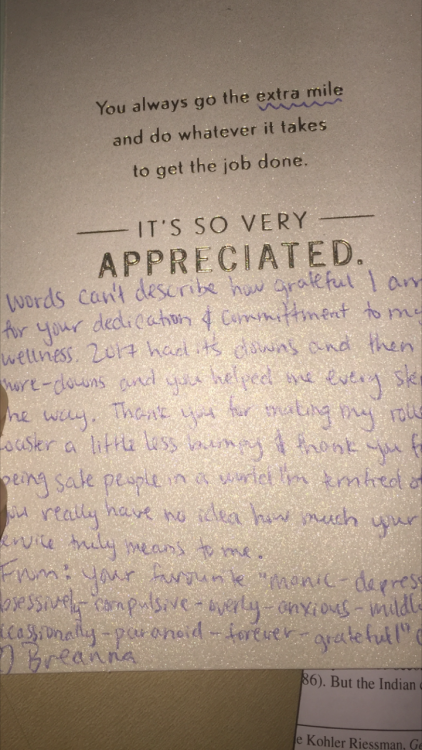 You always go the extra mile
and do whatever it takes
to get the job done.
IT'S SO VERY
APPRECIATED.
Words can't describe how grateful I am
for your dedication & committment to my
wellness. 2017 had its downs and then
more-downs and you helped me every ste
he way. Thank you for making my rolle
oaster a little less bumpy & thank you f
being safe people in a world I'm terrified of
ou really have no idea how much your
ervice truly means to me.
From: your favourite "manic-depress
bsessively-compulsive-overly-anxious-mildl
cassionally-paranoid-forever-grateful!"
:) Breanna
86). But the Indian
e Kohler Riessman. G